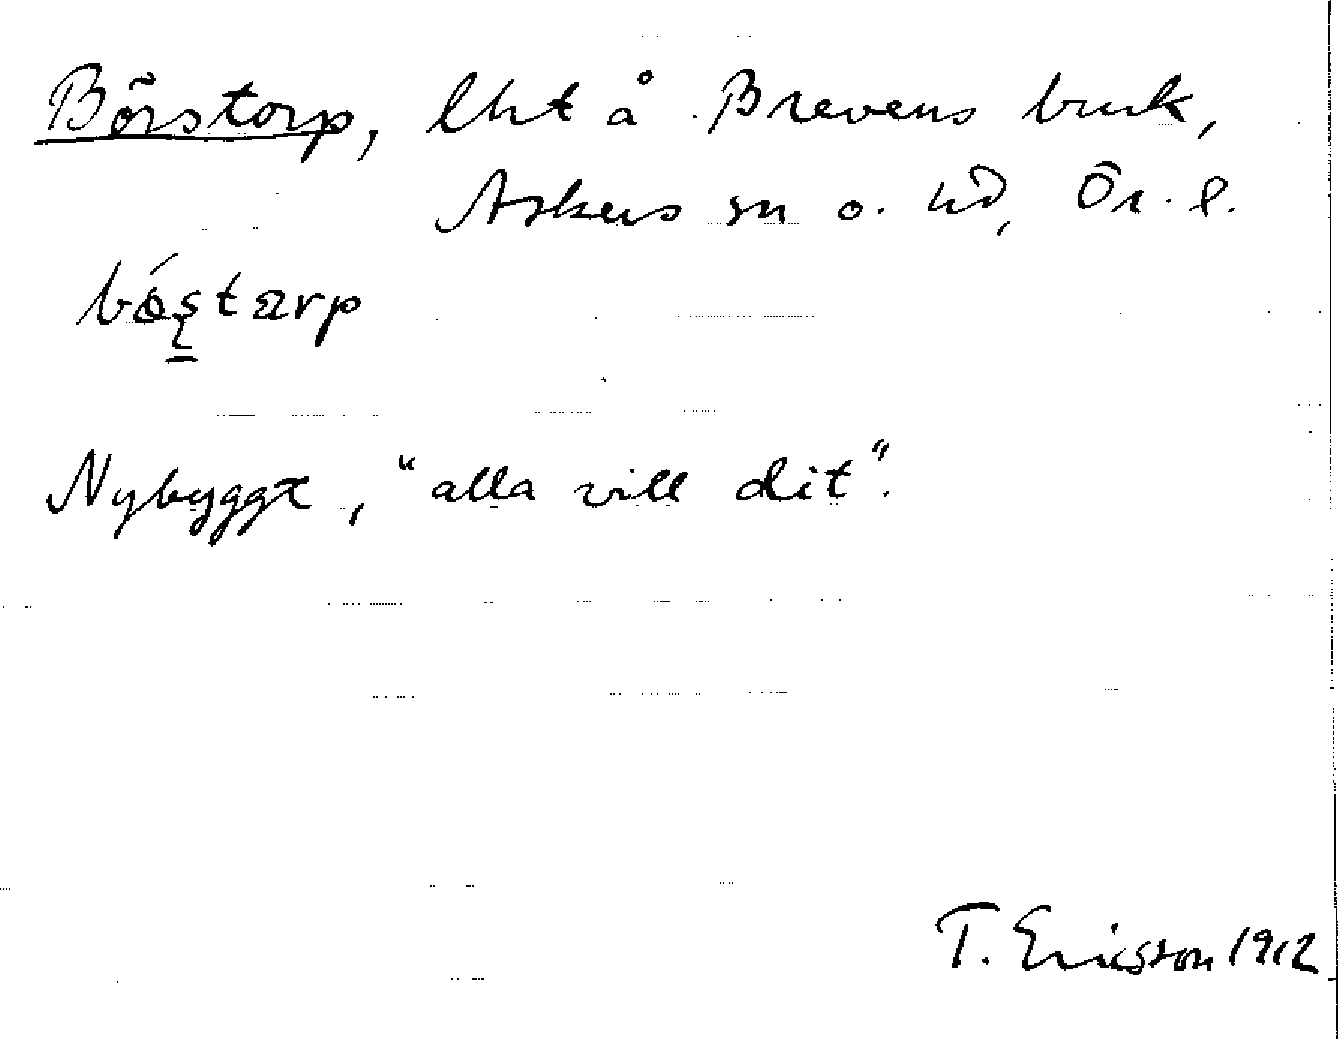 Börstorp, lht å Brevens bruk,
Askers sn o. hd, Ör. l.
Nybyggt, "alla vill dit".
T. Ericsson 1912